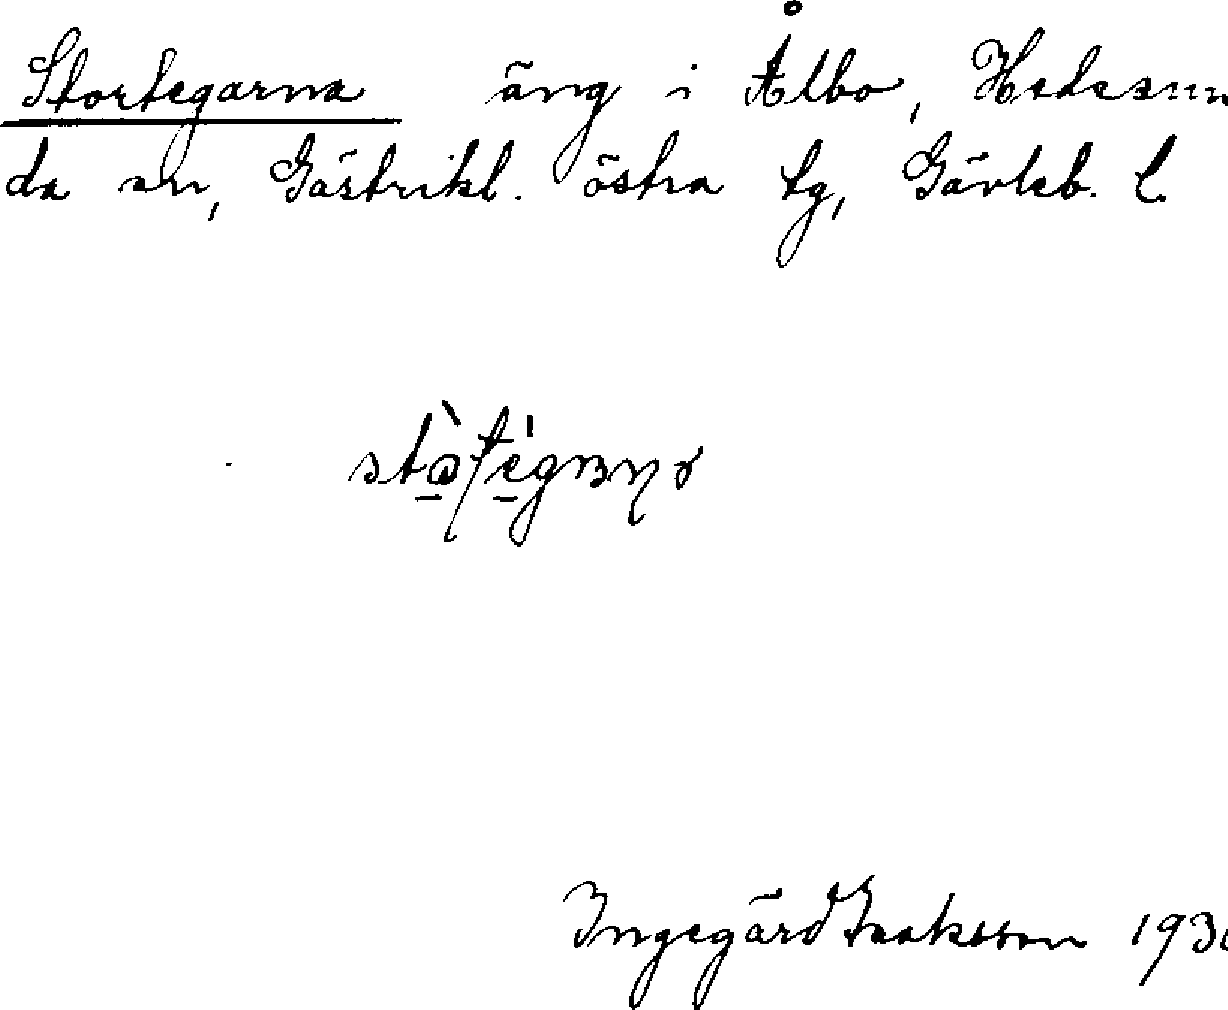 Stortegarna äng i Ålbo, Hedesun
da sn, Gästrikl. östra tg, Gävleb. l.
Ingegärd Isaksson 193